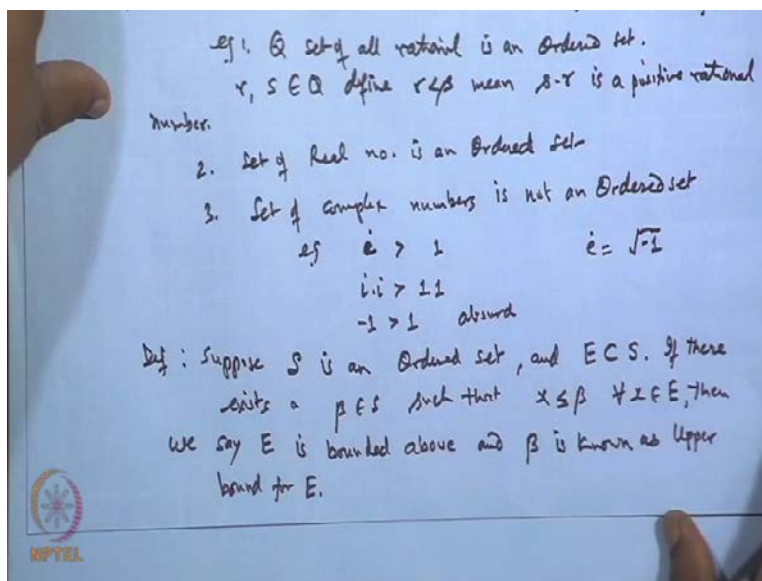 eg 1. Q set of all rational is an Ordered set.
r, s ∈ Q define r<s mean s-r is a positive rational
number.
2. Set of Real no. is an Ordered set
3. Set of complex numbers is not an Ordered set
eg i > 1 i = √-1
i.i > 1.1
-1 > 1 absurd
Def : Suppose S is an Ordered set, and E ⊂ S. If there
exists a β ∈ S such that x ≤ β ∀ x ∈ E, then
we say E is bounded above and β is known as Upper
bound for E.
NPTEL